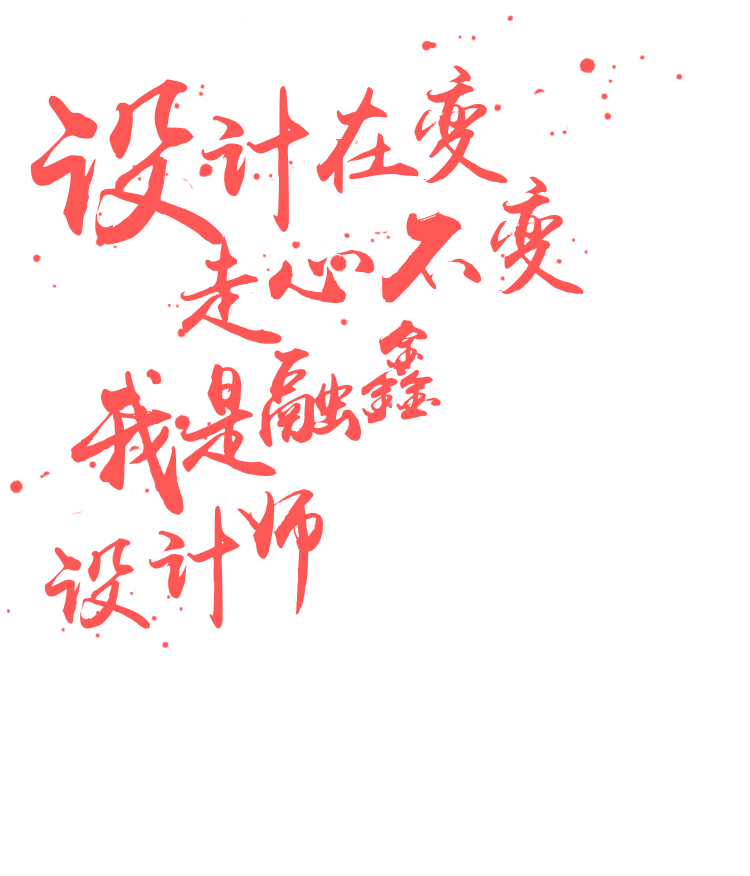 设计在变
走心不变
我是融鑫
设计师